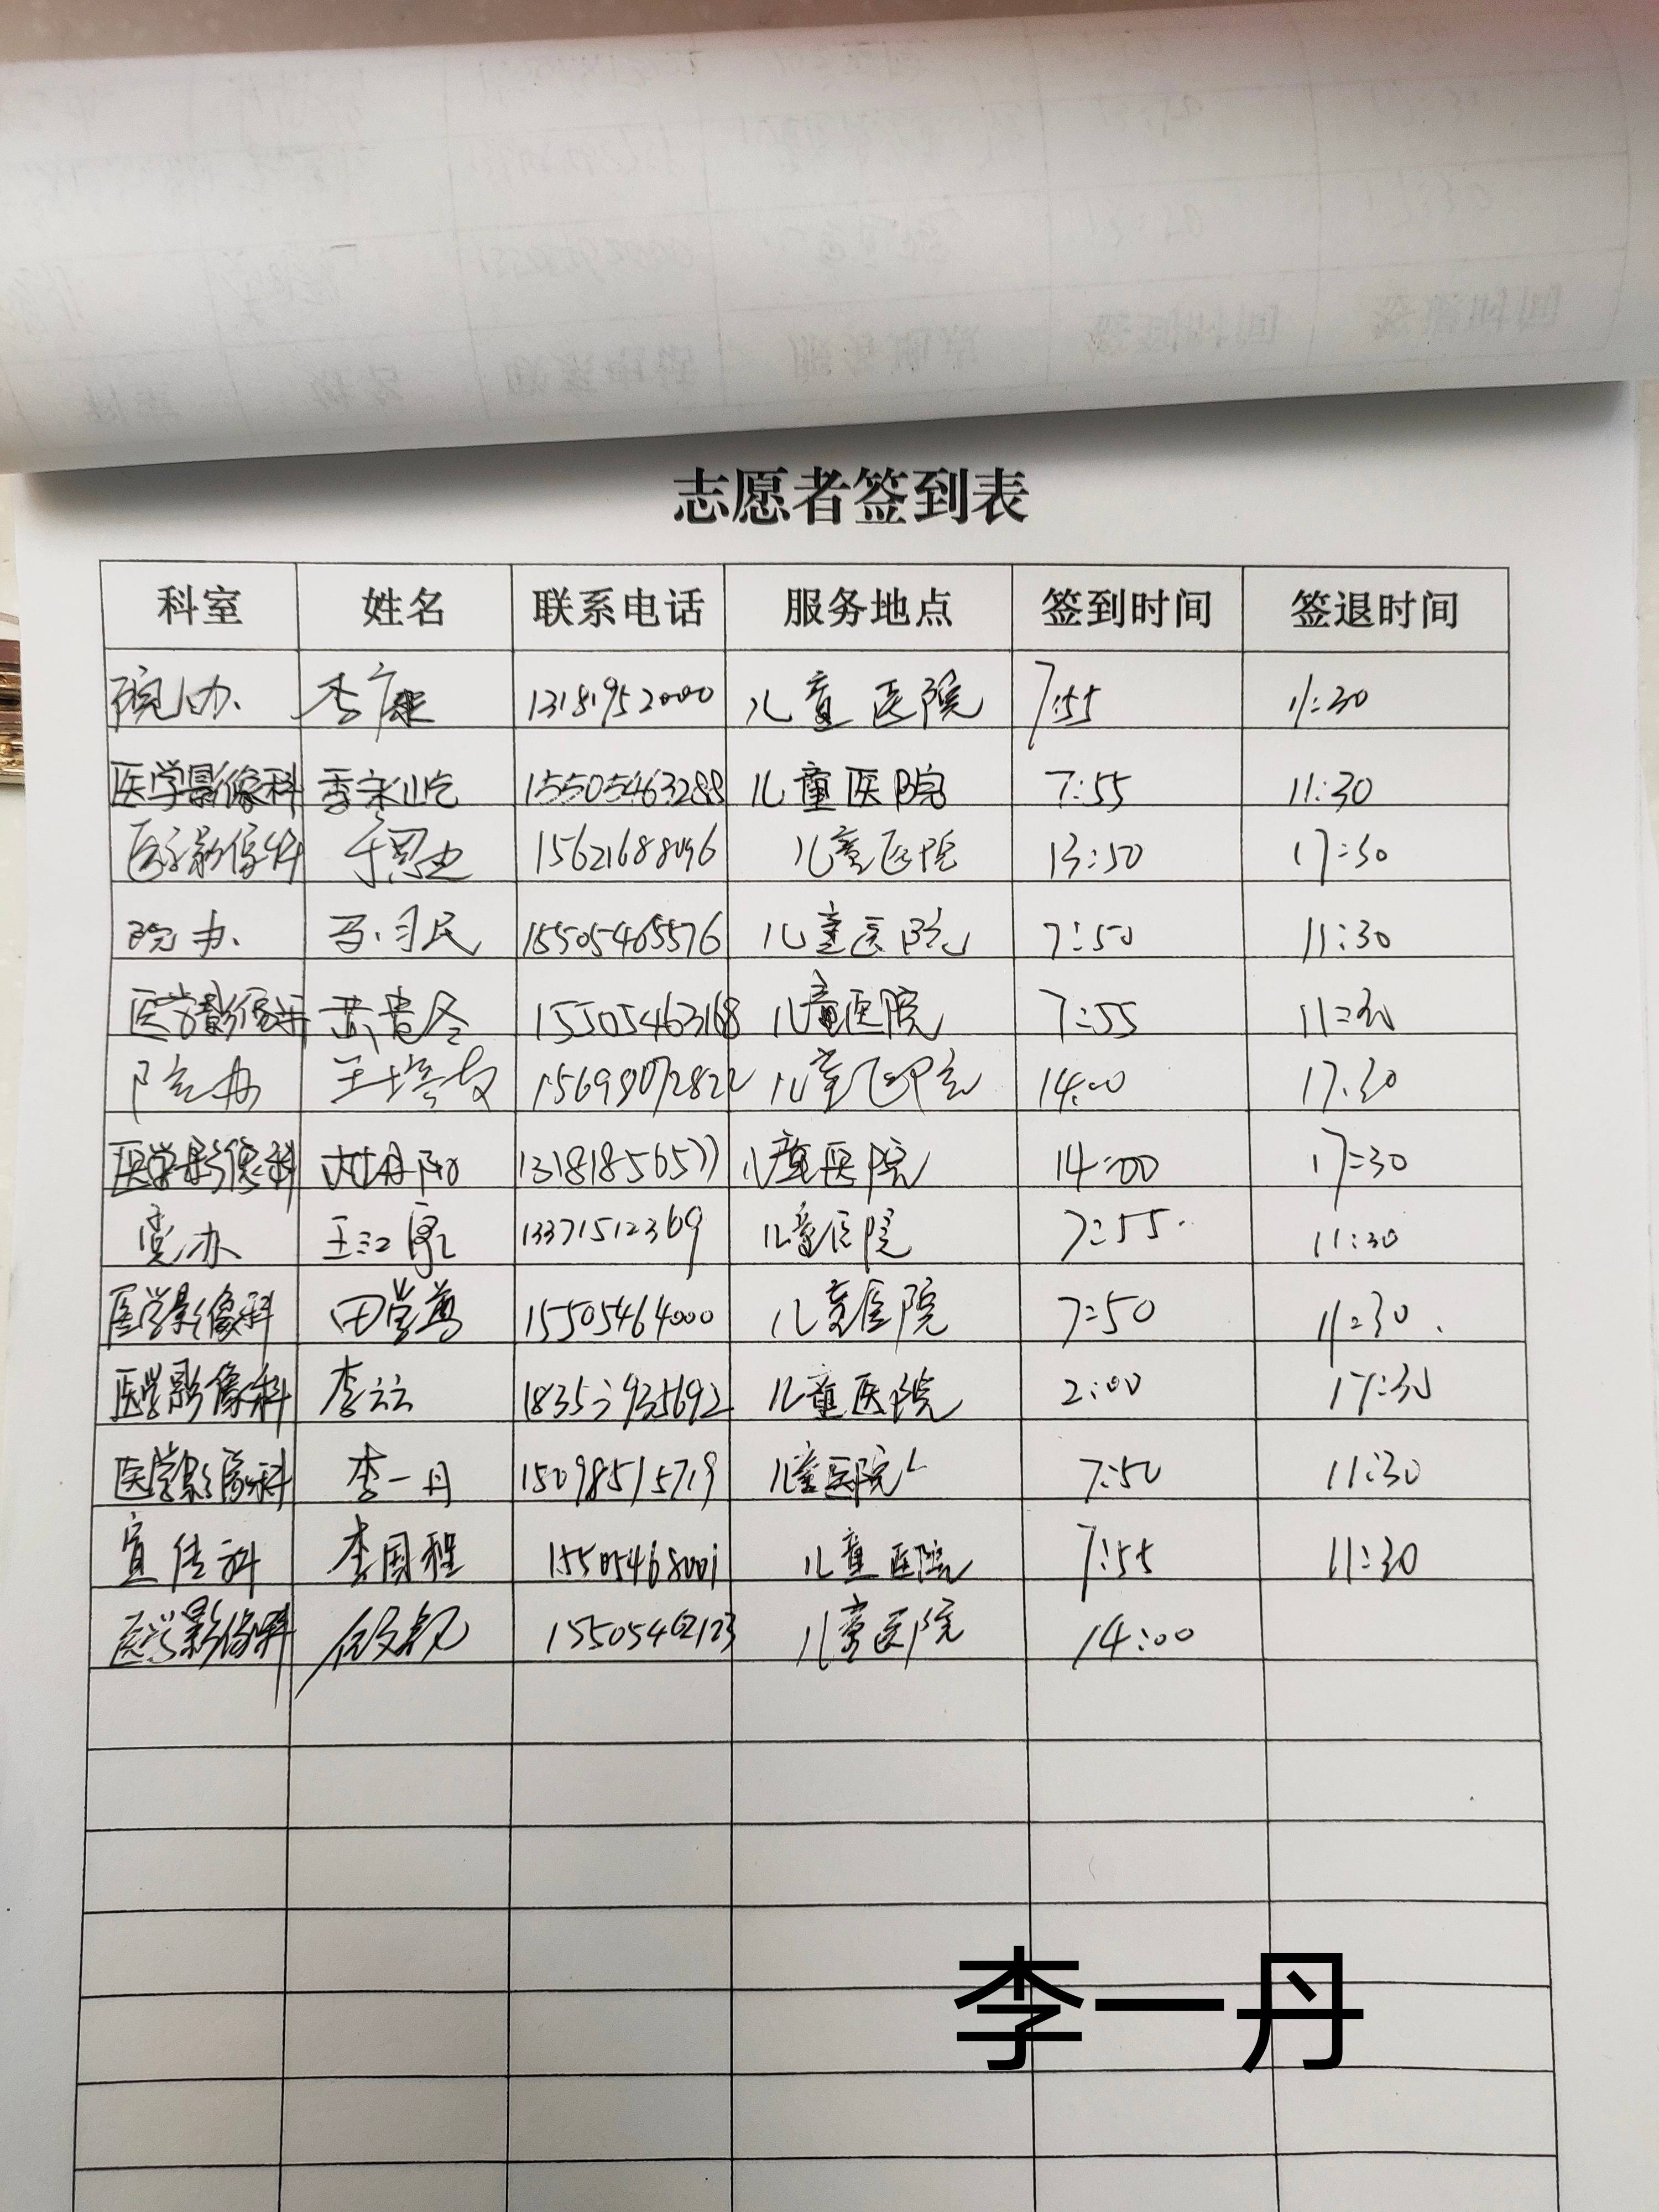 志愿者签到表
科室 姓名 联系电话 服务地点 签到时间 签退时间
院办 李康 13181952000 儿童医院 7:55 11:30
医学影像科 季家屹 15505463288 儿童医院 7:55 11:30
医学影像科 于思世 15621688096 儿童医院 13:50 17:30
院办 马司民 15505465576 儿童医院 7:50 11:30
医学影像科 15505463168 儿童医院 7:55 11:30
院办 王培 15698072822 儿童医院 14:00 17:30
医学影像科 丹阳 13181856577 儿童医院 14:00 17:30
党办 王江 13371512369 儿童医院 7:55 11:30
医学影像科 田学尊 15505464000 儿童医院 7:50 11:30
医学影像科 李云 儿童医院 2:00 17:30
医学影像科 李一丹 15098515719 儿童医院 7:50 11:30
宣传科 李国程 15505468001 儿童医院 7:55 11:30
医学影像科 15505462123 儿童医院 14:00
李一丹